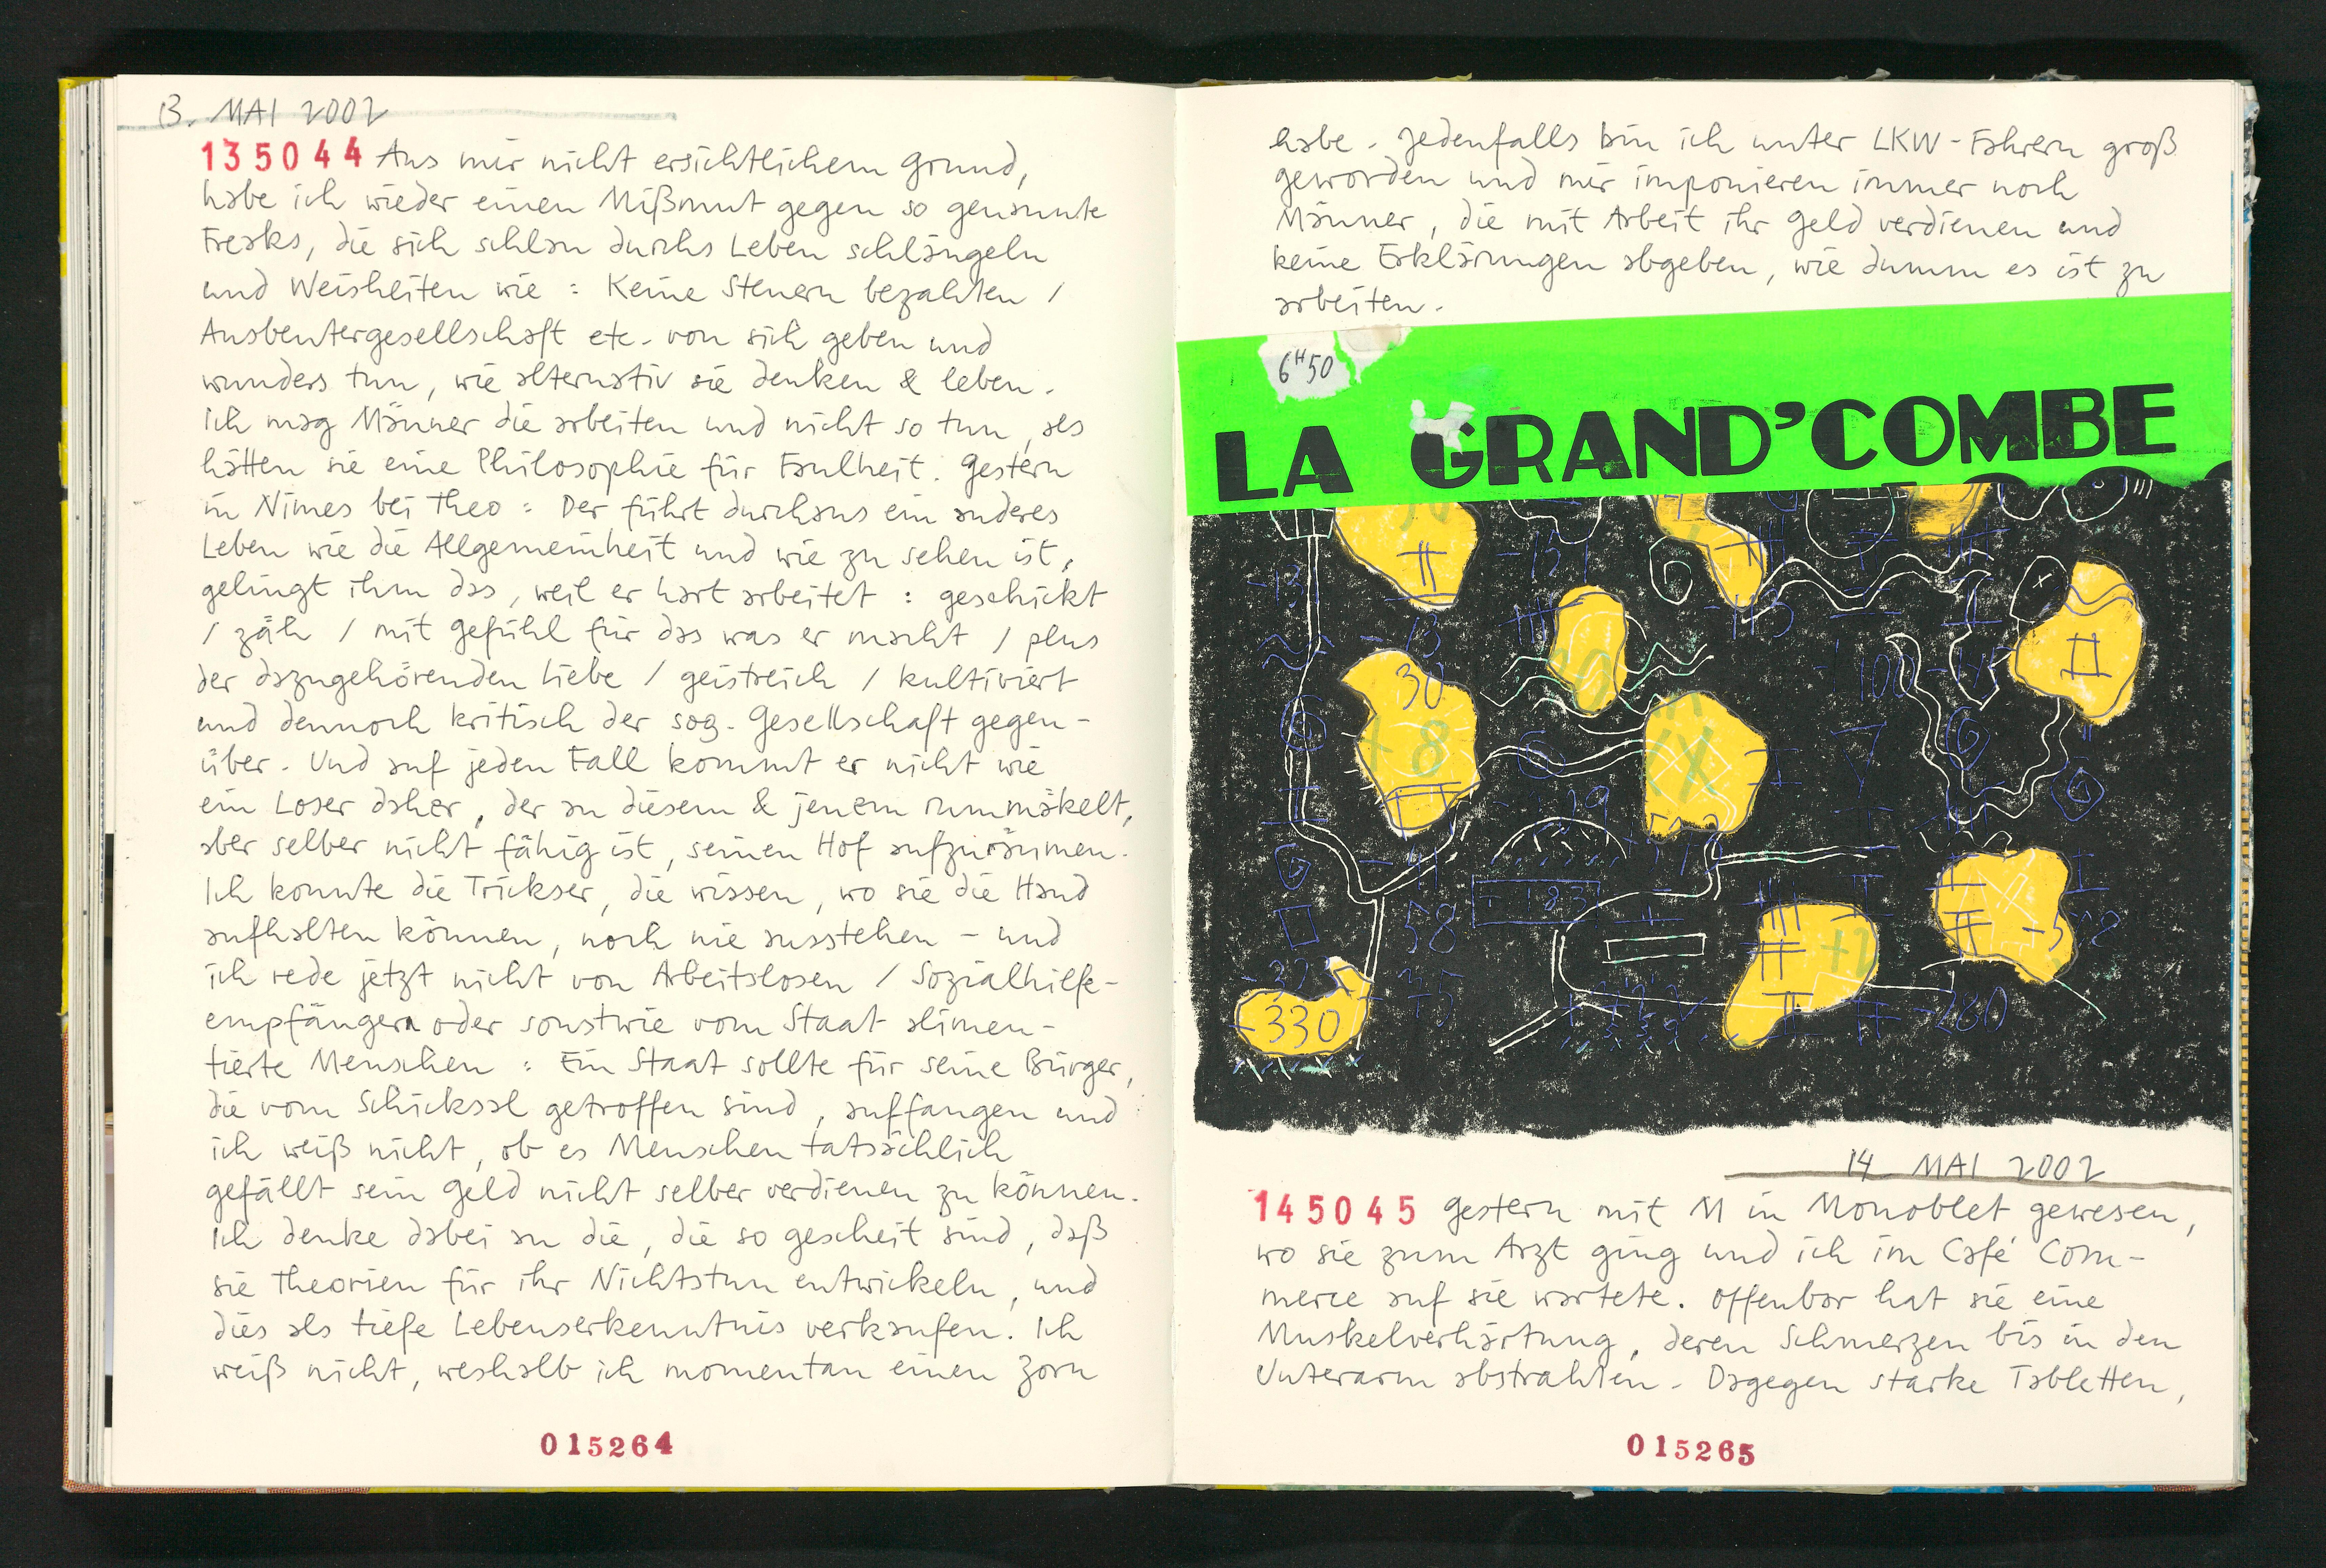 13. MAI 2002
135044 Aus mir nicht ersichtlichem Grund,
habe ich wieder einen Mißmut gegen so genannte
Freaks, die sich schlau durchs Leben schlängeln
und Weisheiten wie : Keine Steuern bezahlen /
Ausbeutergesellschaft etc. von sich geben und
wunders tun, wie alternativ sie denken & leben.
Ich mag Männer die arbeiten und nicht so tun, als
hätten sie eine Philosophie für Faulheit. Gestern
in Nimes bei Theo : Der führt durchaus ein anderes
Leben wie die Allgemeinheit und wie zu sehen ist,
gelingt ihm das, weil er hart arbeitet : geschickt
/ zäh / mit Gefühl für das was er macht / plus
der dazugehörenden Liebe / geistreich / kultiviert
und dennoch kritisch der sog. Gesellschaft gegen-
über. Und auf jeden Fall kommt er nicht wie
ein Loser daher, der an diesem & jenem rummäkelt,
aber selber nicht fähig ist, seinen Hof aufzuräumen.
Ich konnte die Trickser, die wissen, wo sie die Hand
aufhalten können, noch nie ausstehen – und
ich rede jetzt nicht von Arbeitslosen / Sozialhilfe-
empfängern oder sonstwie vom Staat alimen-
tierte Menschen : Ein Staat sollte für seine Bürger,
die vom Schicksal getroffen sind, auffangen und
ich weiß nicht, ob es Menschen tatsächlich
gefällt sein Geld nicht selber verdienen zu können.
Ich denke dabei an die, die so gescheit sind, daß
sie Theorien für ihr Nichtstun entwickeln, und
dies als tiefe Lebenserkenntnis verkaufen. Ich
weiß nicht, weshalb ich momentan einen Zorn
015264
habe. Jedenfalls bin ich unter LKW-Fahrern groß
geworden und mir imponieren immer noch
Männer, die mit Arbeit ihr Geld verdienen und
keine Erklärungen abgeben, wie dumm es ist zu
arbeiten.
6H50
LA GRAND'COMBE
-151
-13
-13
30
-100
+8
XX
7
6
19
-183
58
-330
+2
-280
14. MAI 2002
145045 Gestern mit M in Monoblet gewesen,
wo sie zum Arzt ging und ich im Café Com-
merce auf sie wartete. Offenbar hat sie eine
Muskelverhärtung, deren Schmerzen bis in den
Unterarm abstrahlen. Dagegen starke Tabletten,
015265